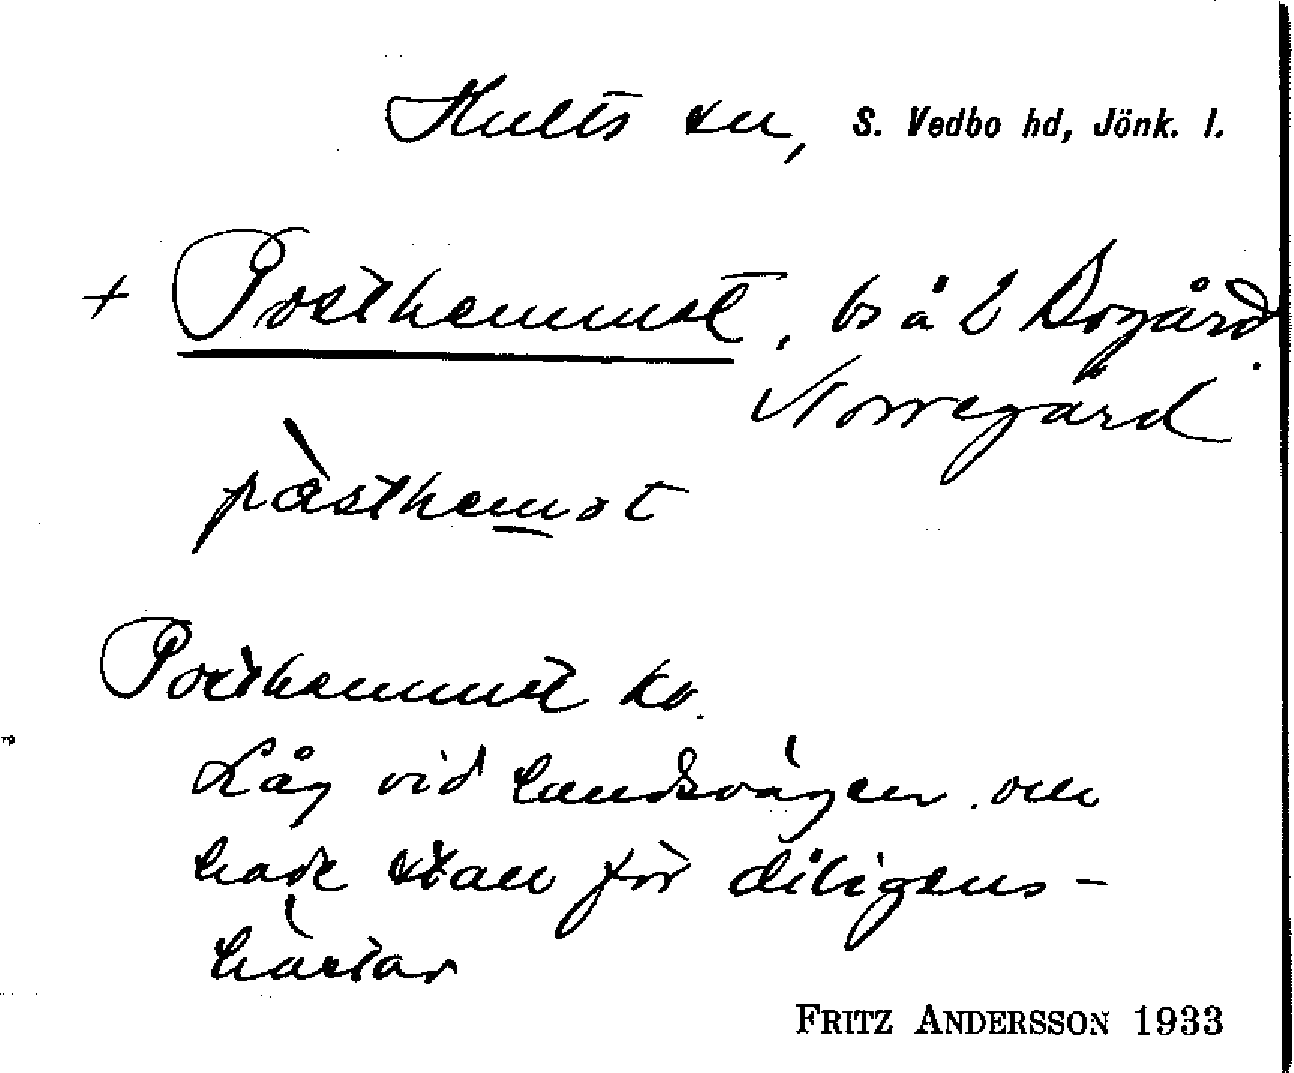 Hults sn, S. Vedbo hd, Jönk. l.
+ Posthemmet, bs å L Bogård
Norregård
pàsthemət
Posthemmet ko.
Låg vid landsvägen och
hade stall för diligens-
hästar
FRITZ ANDERSSON 1933